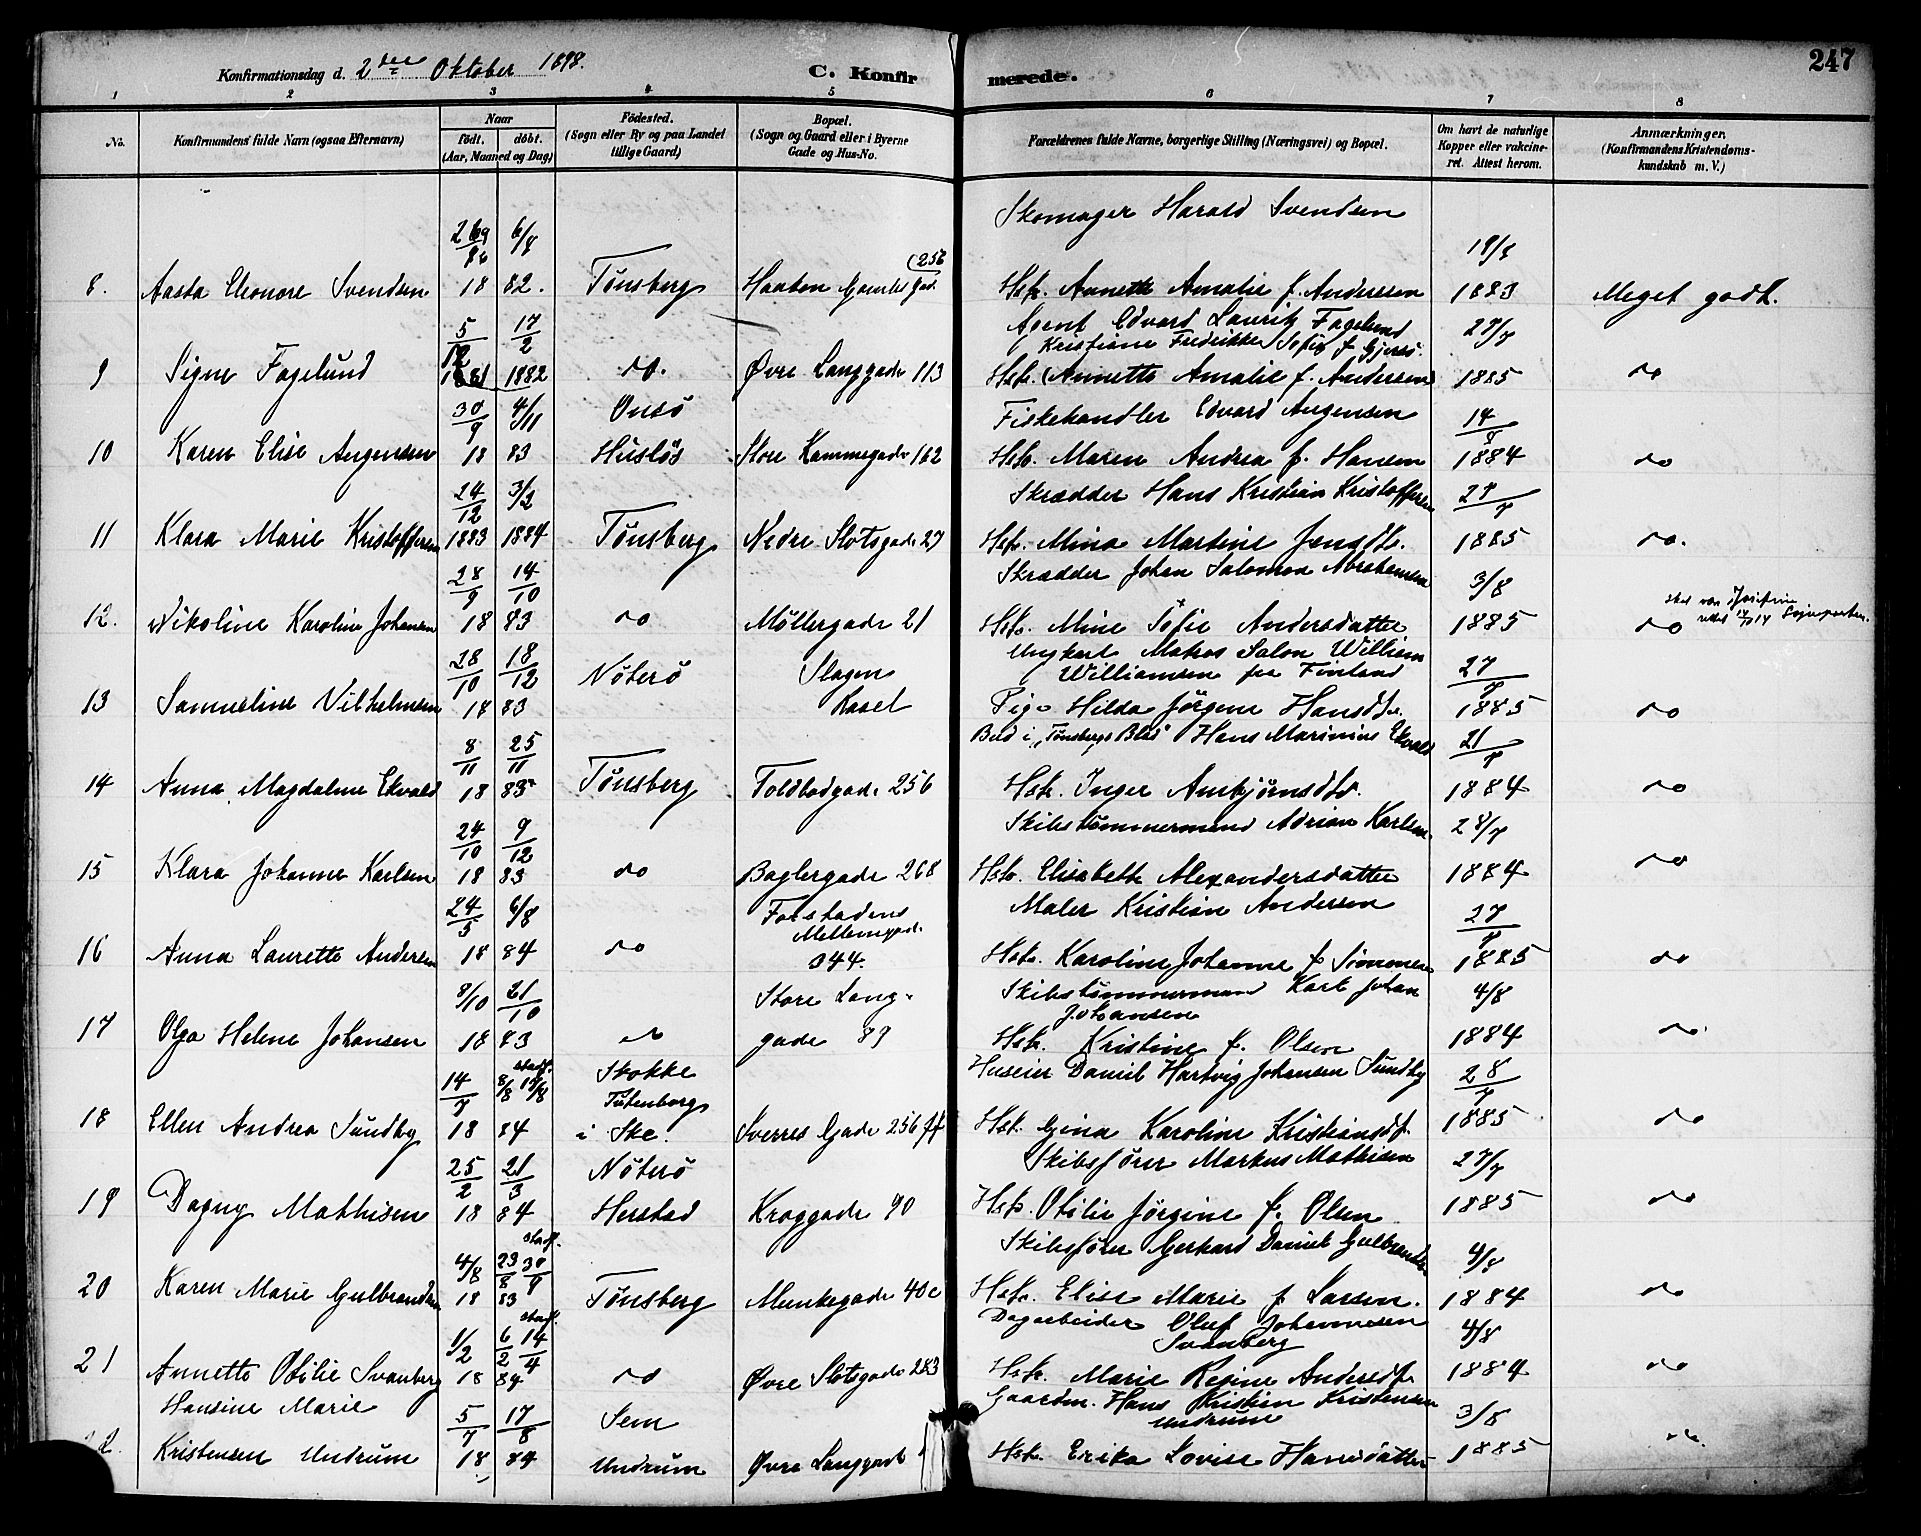 247
Konfirmationsdag d. 2den Oktober 1898.
C. Konfir merede.
1 2 3 4 5 6 7 8
No.
Konfirmandens fulde Navn (ogsaa Efternavn)
Naar
födt. döbt.
(Aar, Maaned og Dag)
Födested.
(Sogn eller By og paa Landet
tillige Gaard)
Bopæl.
(Sogn og Gaard eller i Byerne
Gade og Hus-No.
Forældrenes fulde Navne, borgerlige Stilling (Næringsvei) og Bopæl.
Om havt de naturlige
Kopper eller vakcine-
ret. Attest herom.
Anmærkninger.
(Konfirmandens Kristendoms-
kundskab m. V.)
Skomager Harald Svendsen
6/8 19/8
8. Aasta Eleonore Svendsen 18 82. Tønsberg (256 Hsk. Annette Amalie f. Andersen 1883 Meget godt.
5/12 17/2 Agent Edvard Lauritz Fagelund 27/7
Kristiane Fredrikke Sofie f. Gjersö.
9 Signe Fagelund 1881 1882 do. Øvre Langgade 113 Hsk. (Annette Amalie f. Andersen 1885 do
30/9 4/11 Onsö Fiskehandler Edvard Angensen 14/8
10 Karen Elise Angensen 18 83 Husløs Store Kammegade 162 Hsk. Maren Andrea f. Hansen 1884 do
24/12 3/2 Skrædder Hans Kristian Kristoffersen 27/7
11 Klara Marie Kristoffersen 1883 1884 Tønsberg Nedre Slotsgade 27 Hsk. Mina Martine Jensdtr. 1885 do.
28/9 14/10 Skrædder Johan Salomon Abrahamsen 3/8 skal være Josefine
12. Nikoline Karoline Johansen 18 83 do Møllergade 21 Hsk. Mine Sofie Andersdatter 1885 do
28/10 18/12 Nøterö Slagen Ungkarl Matros Salon William
Williamsen fra Finland 27/7
13 Samueline Vilhelmsen 18 83 Rasel Pige Hilda Jörgine Hansdtr. 1885 do
8/11 25/11 Bud i "Tønsbergs Blad" Hans Marinius Ekvald 21/7
14 Anna Magdalene Ekvald 18 83 Tønsberg Toldbodgade 256 Hsk. Inger Ansbjørnsdtr. 1884 do
24/10 9/12 Skibstömmermand Adrian Karlsen 28/7
15 Klara Johanne Karlsen 18 83 do Baglergade 268 Hsk. Elisabeth Alexandersdatter 1884 do
24/5 6/8 Forstadens Maler Kristian Andersen 27/7
Mellemgade
16 Anna Laurette Andersen 18 84 do 344. Hsk. Karoline Johanne f. Simonsen 1885 do
8/10 21/10 Store Lang- Skibstömmermand Karl Johan 4/8
Johansen
17 Olga Helene Johansen 18 83 do gade 89 Hsk. Kristine f. Olsen 1884 do
14/7 8/8 stadf. 17/8 Stokke Huseier Daniel Hartvig Johansen Sundby 28/7
18 Ellen Andrea Sundby 18 84 i Ske. Sverres Gade 256 ff Hsk. Gina Karoline Kristiansdt. 1885 do
25/2 21/3 Nøterö Skibsfører Markus Mathisen 27/7
19 Dagny Mathisen 18 84 Herstad Kroggade 90 Hsk. Otilie Jørgine f. Olsen 1885 do
4/8 23/8 stadf. 30/9 Skibsfører Gerhard Daniel Gulbrandsen 4/8
20 Karen Marie Gulbrandsen 18 83 Tønsberg Munkegade 40c Hsk. Elise Marie f. Larsen. 1884 do
1/2 6/2 stadf. 14/4 Dagarbeider Oluf Johannesen 4/8
Svanberg
21 Annette Otilie Svanberg 18 84 do Øvre Slotsgade 283 Hsk. Marie Regine Andersdt. 1884 do
Hansine Marie 5/7 17/8 Sem Gaardm. Hans Kristian Kristensen 3/8
Undrum
22. Kristensen Undrum 18 84 Undrum Øvre Langgade Hsk. Erika Lovise Hansdatter 1885 do.